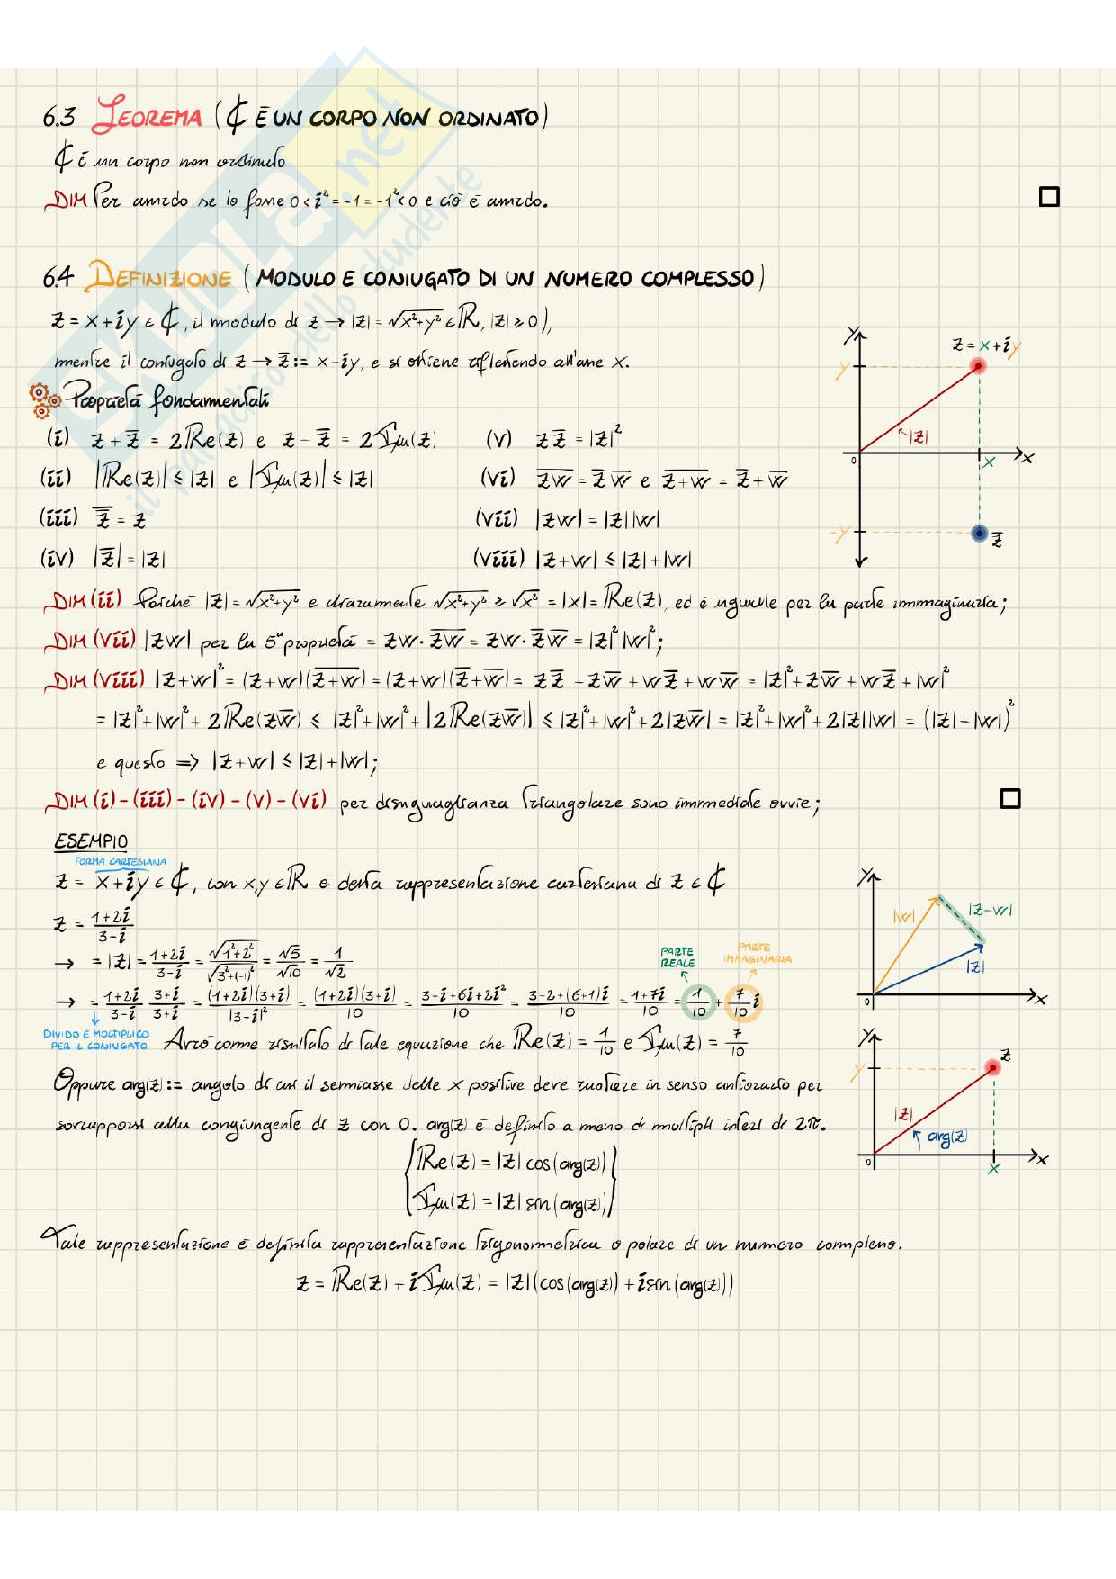 6.3 TEOREMA (ℂ È UN CORPO NON ORDINATO)
ℂ è un corpo non ordinato
DIM Per assurdo se lo fosse 0 < i² = -1 = -1² < 0 e ciò è assurdo.
6.4 DEFINIZIONE (MODULO E CONIUGATO DI UN NUMERO COMPLESSO)
z = x + iy ∈ ℂ, il modulo di z → |z| = √x²+y² ∈ ℝ, |z| ≥ 0),
mentre il coniugato di z → z̅ := x - iy, e si ottiene riflettendo all'asse x.
Proprietà fondamentali
(i) z + z̅ = 2Re(z) e z - z̅ = 2Im(z)
(v) z z̅ = |z|²
(ii) |Re(z)| ≤ |z| e |Im(z)| ≤ |z|
(vi) z̅w̅ = z̅ w̅ e z̅+̅w̅ = z̅ + w̅
(iii) z̿ = z
(vii) |zw| = |z||w|
(iv) |z̅| = |z|
(viii) |z+w| ≤ |z| + |w|
y
z = x + iy
y
|z|
0
x
x
-y
z̅
DIM (ii) Poiché |z| = √x²+y² e chiaramente √x²+y² ≥ √x² = |x| = Re(z), ed è uguale per la parte immaginaria;
DIM (vii) |zw| per la 5ª proprietà = zw · z̅w̅ = zw · z̅ w̅ = |z|²|w|²;
DIM (viii) |z+w|² = (z+w)(z̅+̅w̅) = (z+w)(z̅+w̅) = z z̅ + z w̅ + w z̅ + w w̅ = |z|² + z w̅ + w z̅ + |w|²
= |z|² + |w|² + 2Re(z w̅) ≤ |z|² + |w|² + |2Re(z w̅)| ≤ |z|² + |w|² + 2|z w̅| = |z|² + |w|² + 2|z||w| = (|z| - |w|)²
e questo ⇒ |z+w| ≤ |z| + |w|;
DIM (i) - (iii) - (iv) - (v) - (vi) per disuguaglianza triangolare sono immediate ovvie;
ESEMPIO
FORMA CARTESIANA
z = x + iy ∈ ℂ, con x,y ∈ ℝ è detta rappresentazione cartesiana di z ∈ ℂ
z = 1+2i / 3-i
→ = |z| = 1+2i / 3-i = √1²+2² / √3²+(-1)² = √5 / √10 = 1 / √2
PARTE REALE
PARTE IMMAGINARIA
→ = 1+2i / 3-i · 3+i / 3+i = (1+2i)(3+i) / |3-i|² = (1+2i)(3+i) / 10 = 3-i+6i+2i² / 10 = 3-2+(6+1)i / 10 = 1+7i / 10 = 1/10 + 7/10 i
DIVIDO E MOLTIPLICO
PER IL CONIUGATO
Avrò come risultato di tale equazione che Re(z) = 1/10 e Im(z) = 7/10
y
|w|
|z-w|
|z|
0
x
Oppure arg(z) := angolo di cui il semiasse delle x positive deve ruotare in senso antiorario per
sovrapporsi alla congiungente di z con 0. arg(z) è definito a meno di multipli interi di 2π.
Re(z) = |z| cos(arg(z))
Im(z) = |z| sin(arg(z))
y
z
y
|z|
arg(z)
0
x
x
Tale rappresentazione è definita rappresentazione trigonometrica o polare di un numero complesso.
z = Re(z) + i Im(z) = |z|(cos(arg(z)) + i sin(arg(z)))